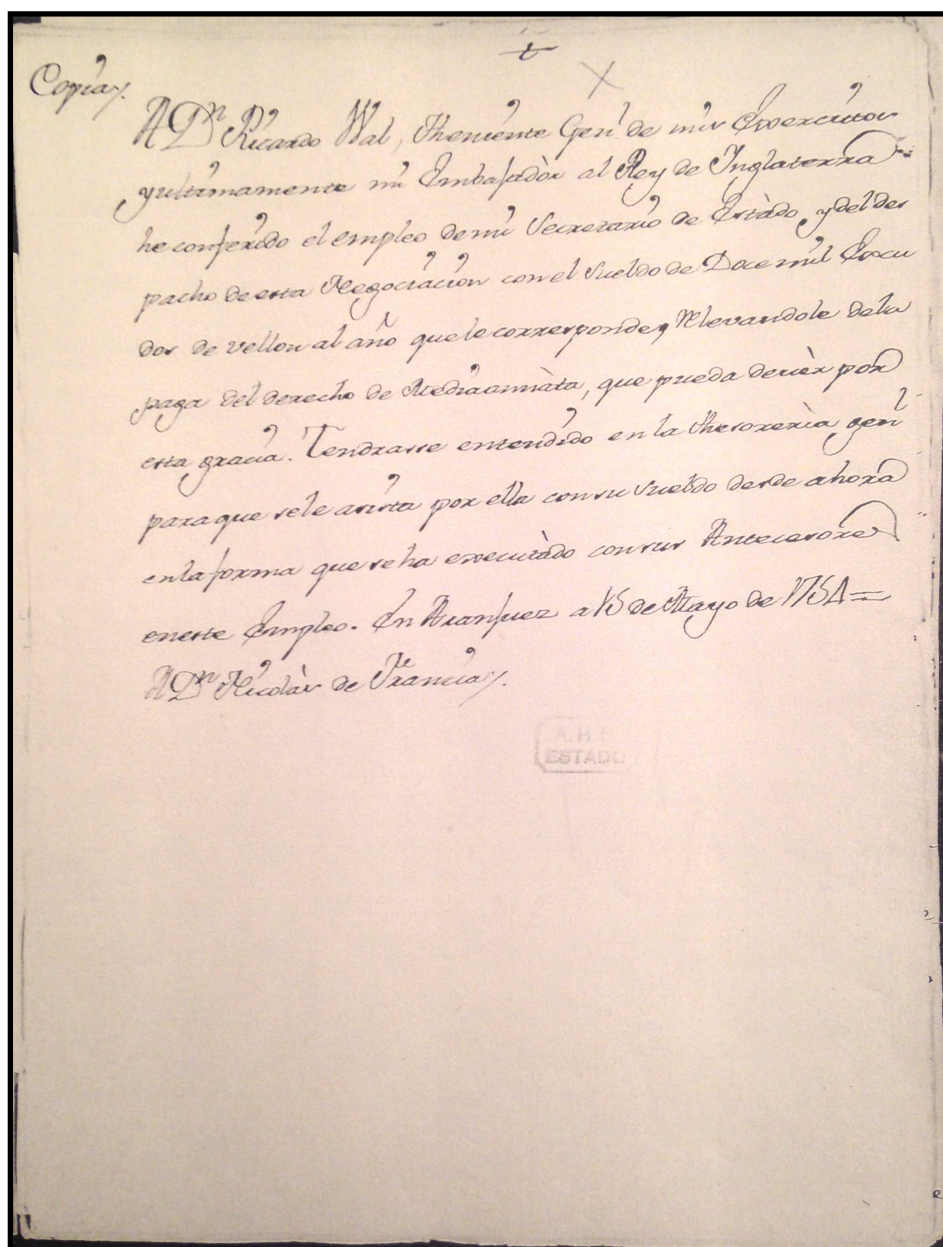 Copia
A Dn Ricardo Wal, Theniente Genl de mis Exercitos
y ultimamente mi Embaxadòr al Rey de Inglaterra
he conferido el empleo de mi Secretario de Estàdo, y del des
pacho de esta Negociación con el sueldo de Doce mil Escu
dos de vellon al año que le corresponde, relevandole de la
paga del derecho de Mediaannàta, que pueda devèr por
esta gracia. Tendrasse entendido en la thesorerìa genl
para que se le asista por ella con su sueldo desde ahora
en la forma que se ha executàdo con sus Antecesores
en este Empleo. En Aranjuez a 15 de Mayo de 1754=
A Dn Nicolàs de Francia
A. H. N.
ESTADO